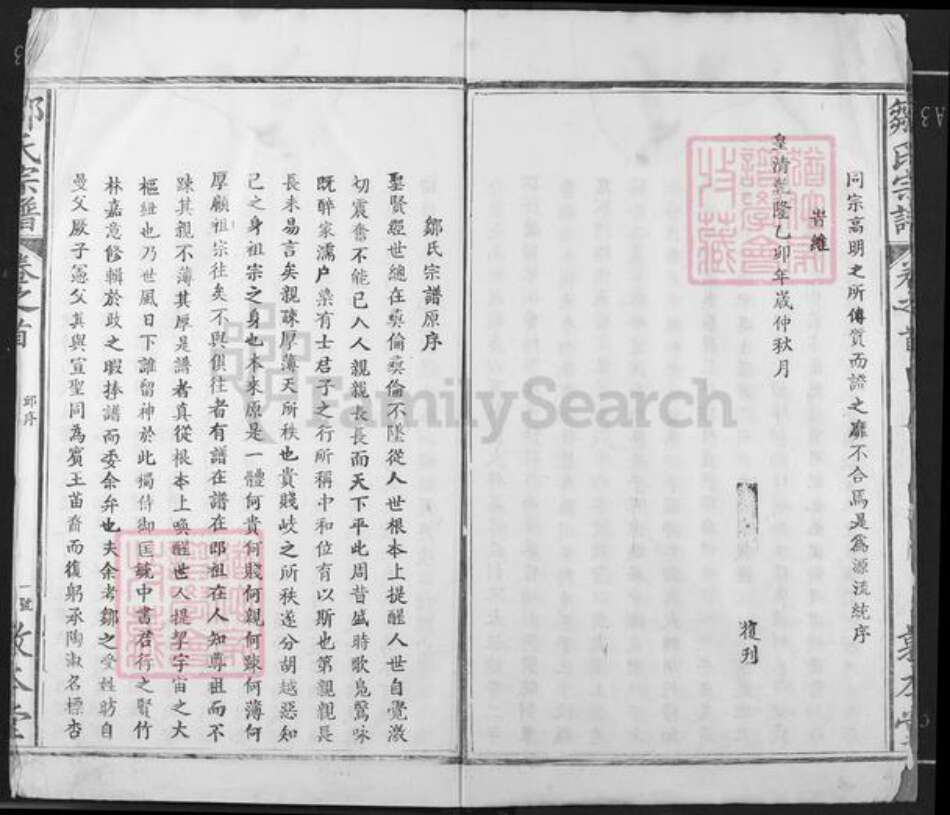 鄒氏宗譜
卷之首
敦本堂
同宗高明之所傳質而諮之靡不合焉是爲源流統序
旹維
皇清乾隆乙卯年歲仲秋月
復列
遵師
譜學會
收藏
鄒氏宗譜原序
聖賢經世總在彝倫彝倫不墜從人世根本上提醒人世自覺激
切震奮不能已人人親親長長而天下平此周昔盛時歌鳧鷖咏
既醉家濡户染有士君子之行所稱中和位育以斯也第親親長
長未易言矣親疎厚薄天所秩也貴賤岐之所秩遂分胡越惡知
己之身祖宗之身也本來原是一體何貴何賤何親何疎何薄何
厚顧祖宗往矣不與俱往者有譜在譜在即祖在人知尊祖而不
疎其親不薄其厚是譜者真從根本上喚醒世人提挈宇宙之大
樞紐也乃世風日下誰留神於此獨侍御匡皷中書君行之賢竹
林嘉意修輯於政之暇捧譜而委余弁也夫余考鄒之受姓昉自
曼父厥子愙父真與宣聖同為賓王苗裔而復躬承陶淑名標杏
鄒氏宗譜
卷之首
邱序
一號
敦本堂
FamilySearch